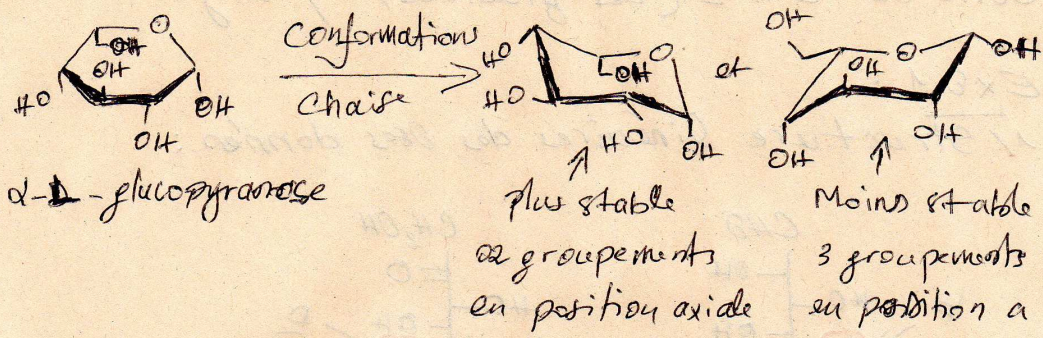 OH
OH
HO
OH
OH
α-D-glucopyranose
Conformations
Chaise
HO
HO
O
OH
HO
OH
plus stable
02 groupements
en position axiale
et
OH
O
OH
OH
OH
OH
Moins stable
3 groupements
en position a